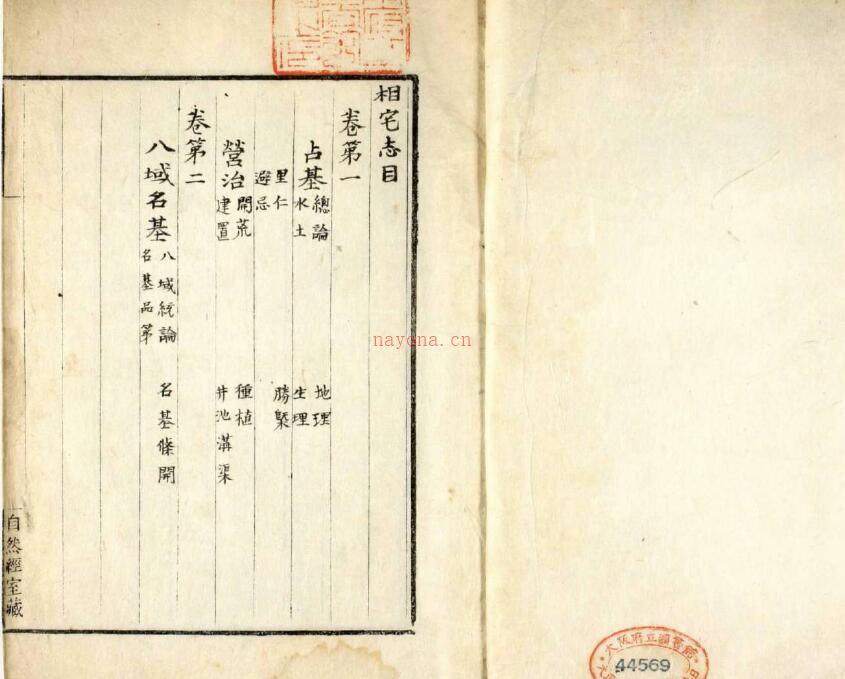 相宅志目
卷第一
占基 總論 地理
水土 生理
里仁 勝槩
避忌
營治 開荒 種植
建置 井池溝渠
卷第二
八域名基 八域統論
名基品第 名基條開
自然經室藏
nayona.cn
大阪府立圖書館
44569